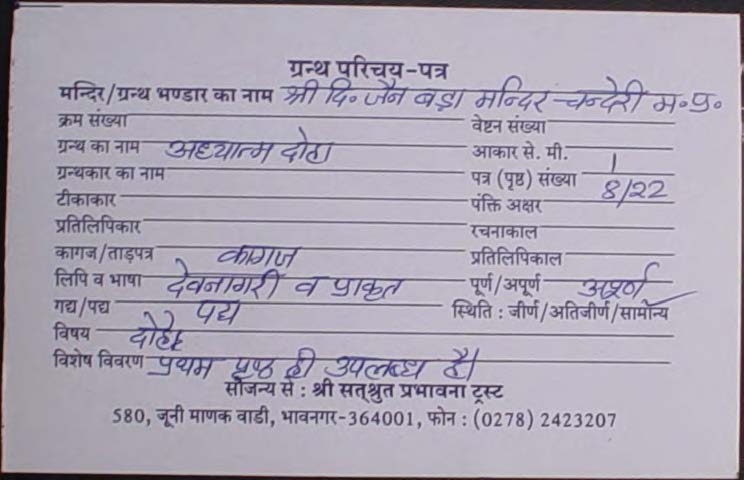 ग्रन्थ परिचय-पत्र
मन्दिर/ग्रन्थ भण्डार का नाम श्री दि॰ जैन बड़ा मन्दिर चन्देरी म॰ प्र॰
क्रम संख्या वेष्टन संख्या
ग्रन्थ का नाम अध्यात्म दोहा आकार से. मी.
ग्रन्थकार का नाम पत्र (पृष्ठ) संख्या 1
टीकाकार पंक्ति अक्षर 8/22
प्रतिलिपिकार रचनाकाल
कागज/ताड़पत्र कागज प्रतिलिपिकाल
लिपि व भाषा देवनागरी व प्राकृत पूर्ण/अपूर्ण अपूर्ण
गद्य/पद्य पद्य स्थिति : जीर्ण/अतिजीर्ण/सामान्य
विषय दोहे
विशेष विवरण प्रथम पृष्ठ ही उपलब्ध है।
सौजन्य से : श्री सत्श्रुत प्रभावना ट्रस्ट
580, जूनी माणक वाडी, भावनगर-364001, फोन : (0278) 2423207